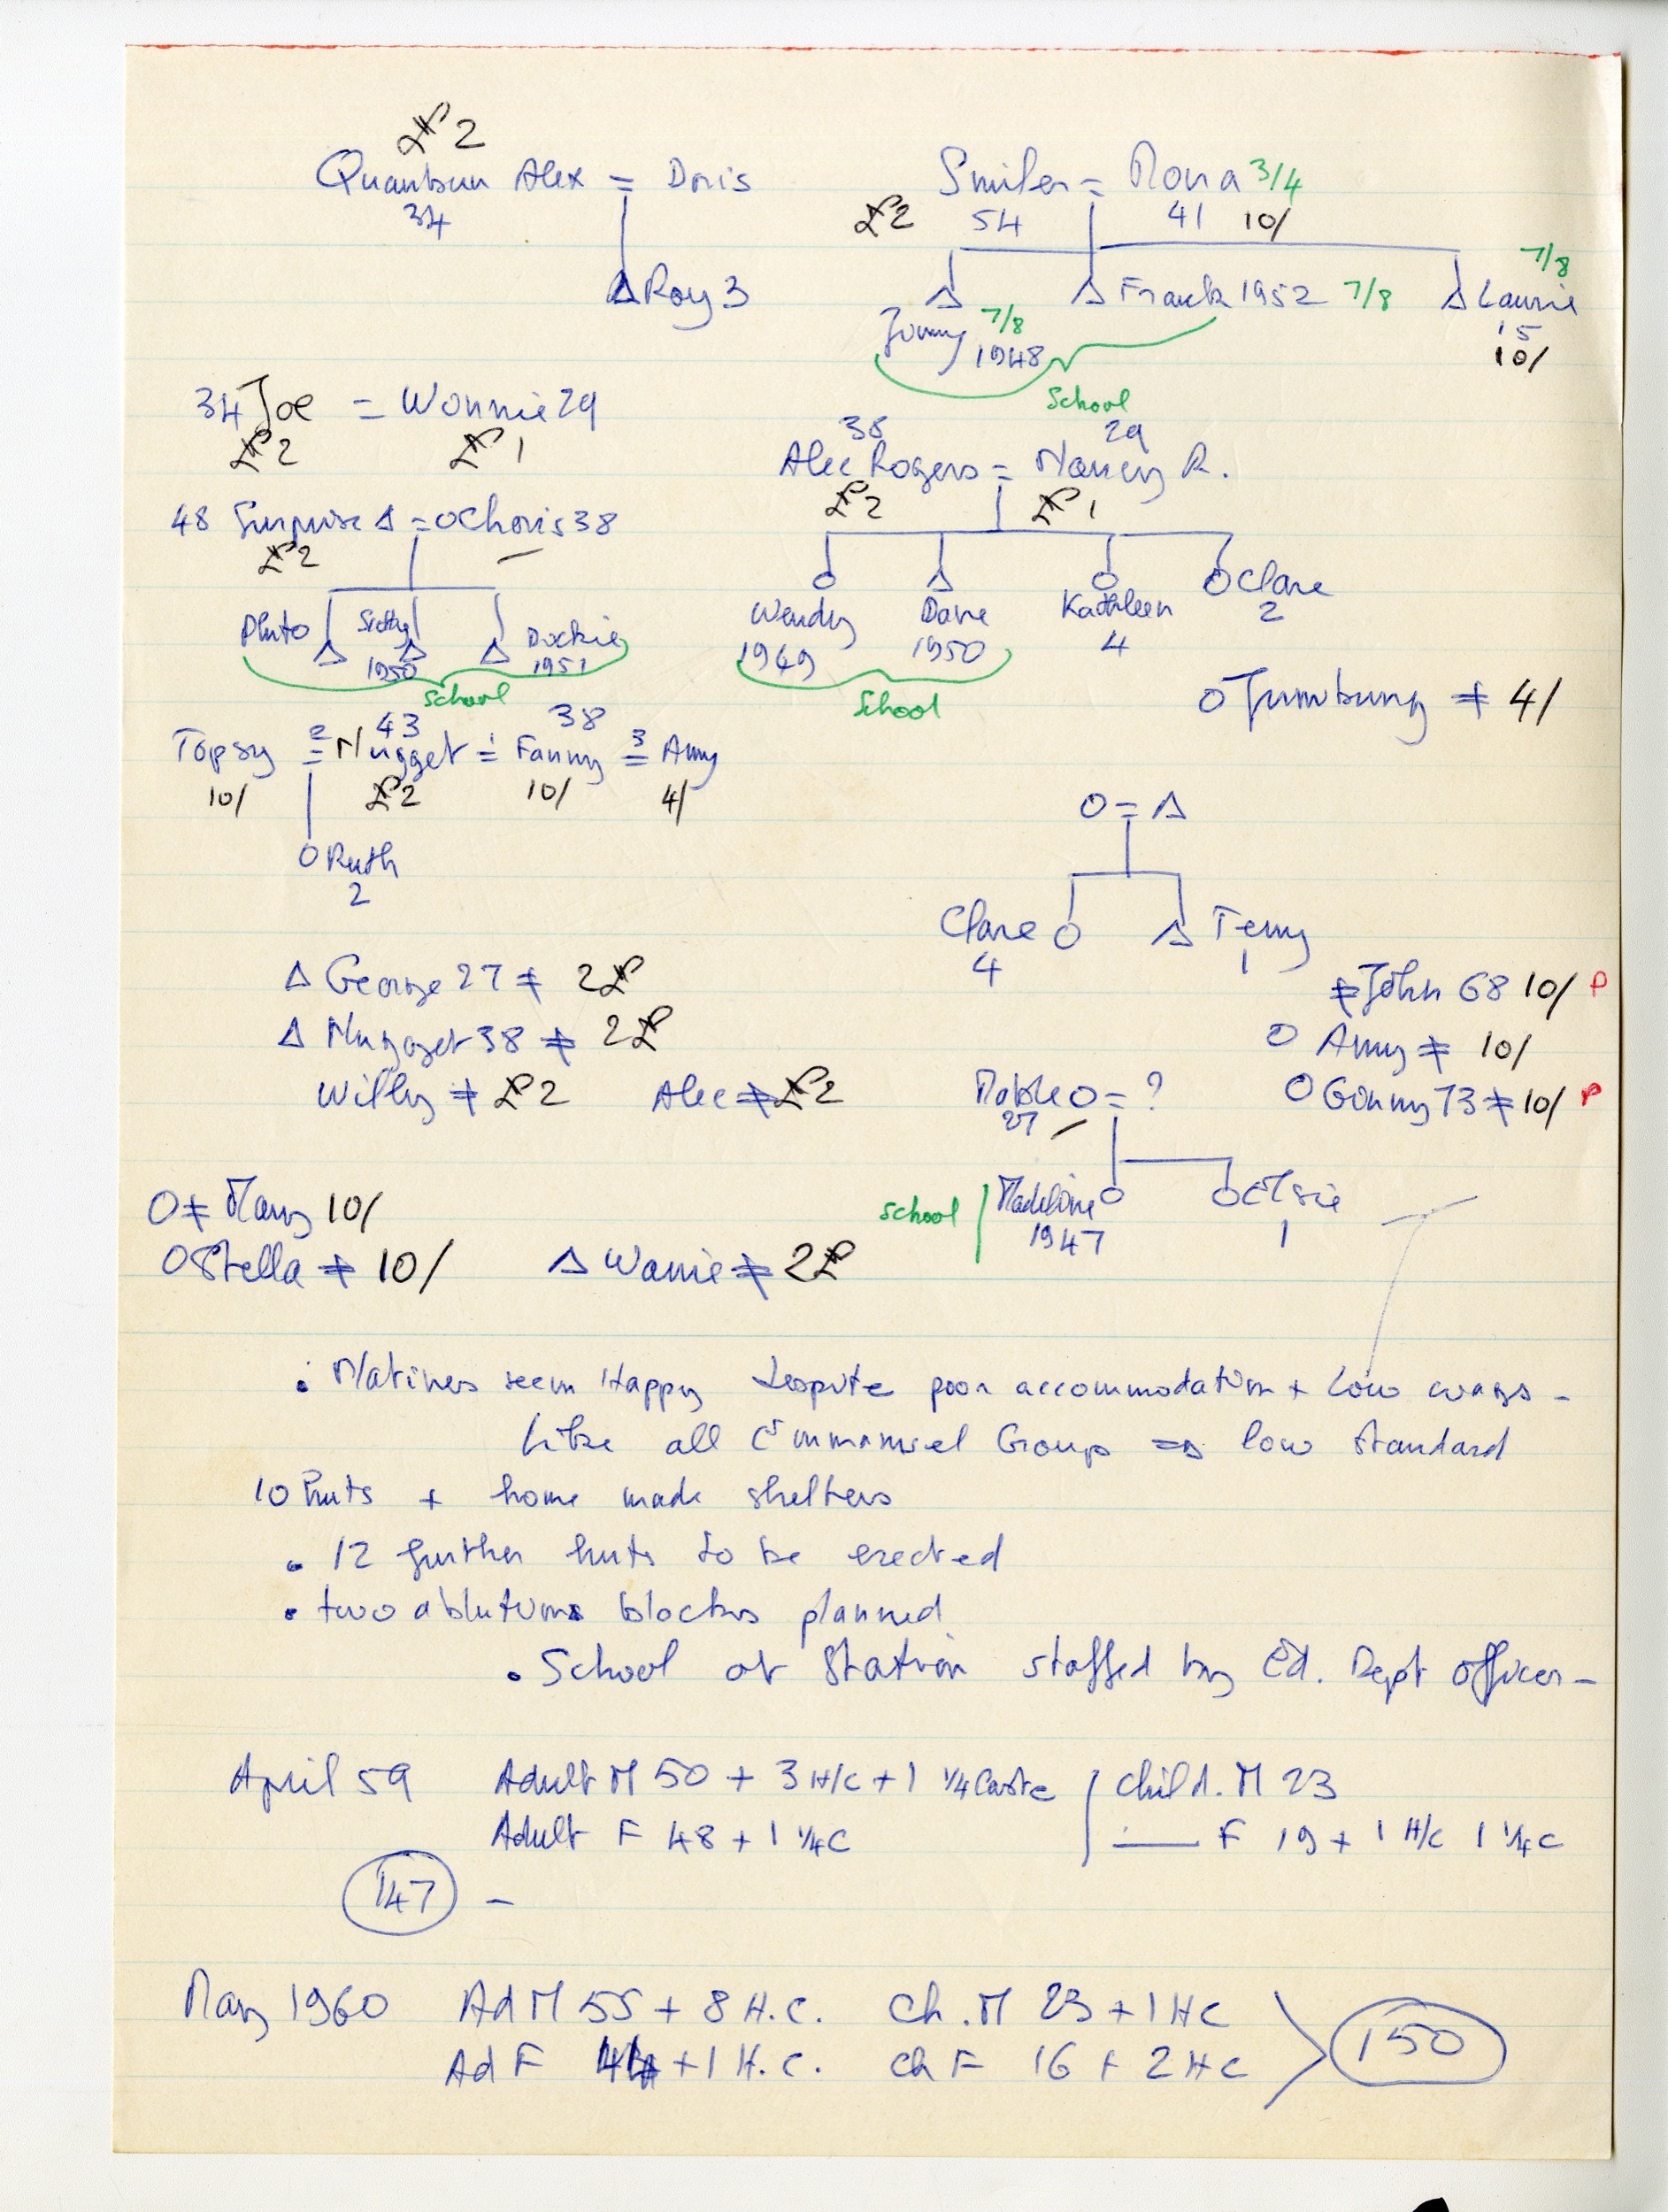 £2
Quanbun Alex = Doris
34
Roy 3
Smiler = Nona 3/4
£2 54 41 10/
Jimmy 7/8 1948
Frank 1952 7/8
7/8 Laurie 15 10/
School
34 Joe = Wonnie 29
£2 £1
38 29
Alec Rogers = Nancy R.
£2 £1
48 Surprise Δ = O Choris 38
£2 –
Pluto
1950
Duckie 1951
School
Wendy 1949
Dave 1950
Kathleen 4
O Clare 2
School
O Jumbung ≠ 4/
43 38
Topsy 2= Nugget 1= Fanny 3= Amy
10/ £2 10/ 4/
O Ruth
2
O = Δ
Clare O Δ Terry
4 1
Δ George 27 ≠ 2£
Δ Nugget 38 ≠ 2£
Willy ≠ £2 Alec ≠ £2
≠ John 68 10/ P
O Amy ≠ 10/
O Ginny 73 ≠ 10/ P
Mable O = ?
27 –
School
Madeline O
1947
O Elsie
1
O ≠ Mary 10/
O Stella ≠ 10/ Δ Wanie ≠ 2£
• Natives seem Happy despite poor accommodation + Low wages –
Like all Emmanuel Group => low standard
10 huts + home made shelters
• 12 further huts to be erected
• two ablutions blocks planned
• School at Station staffed by Ed. Dept Officer –
April 59 Adult M 50 + 3 H/C + 1 1/4 Caste / Child. M 23
Adult F 48 + 1 1/4 C —— F 19 + 1 H/C 1 1/4 C
147 –
May 1960 Ad M 55 + 8 H.C. Ch. M 23 + 1 HC
Ad F 44 + 1 H.C. Ch F 16 + 2 HC
150